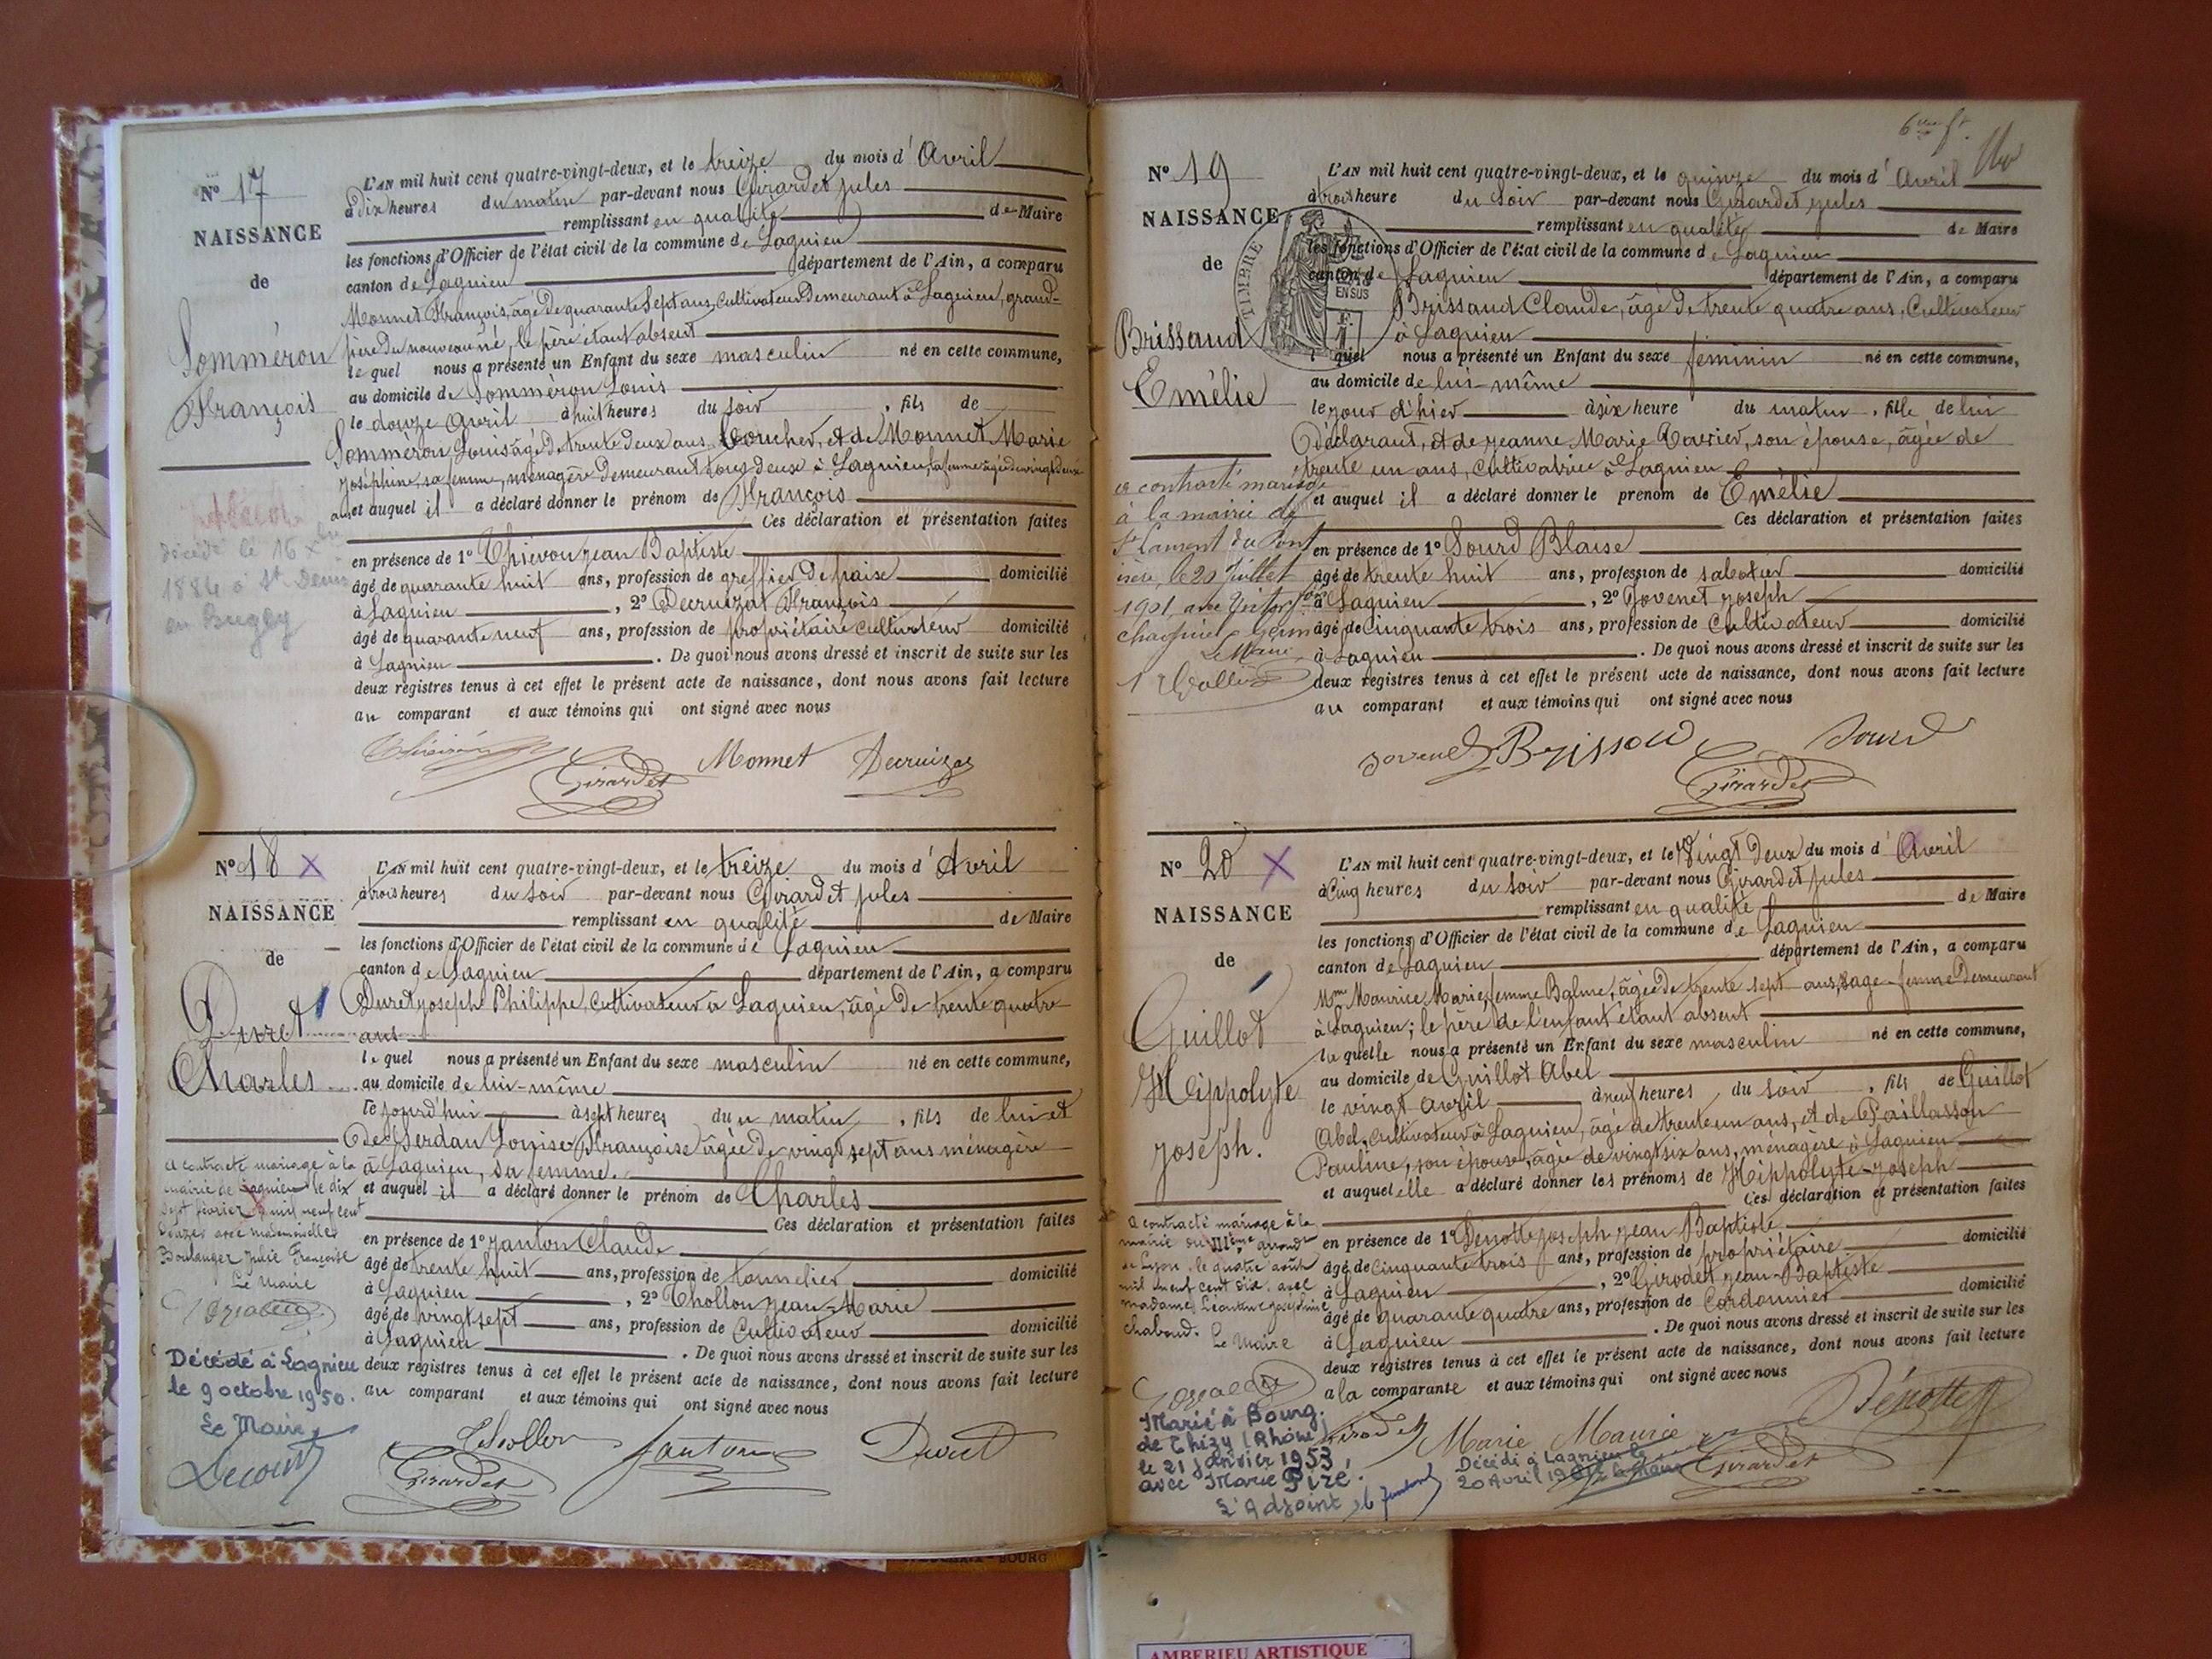 N° 17
NAISSANCE
de
Somméron
François
décédé le 16 xbre
1884 à St Denis
en Bugey
L'AN mil huit cent quatre-vingt-deux, et le treize du mois d'Avril
à dix heures du matin par-devant nous Girardet Jules
remplissant en qualité de Maire
les fonctions d'Officier de l'état civil de la commune de Lagnieu
canton de Lagnieu département de l'Ain, a comparu
Monnet François, âgé de quarante sept ans, cultivateur demeurant à Lagnieu, grand-
père du nouveau né, le père étant absent
le quel nous a présenté un Enfant du sexe masculin né en cette commune,
au domicile de Somméron Louis
le douze Avril à huit heures du soir, fils de
Somméron Louis âgé de trente deux ans, boucher, et de Monnet Marie
Joséphine, sa femme, ménagère demeurant tous deux à Lagnieu, la femme âgée de vingt deux
ans et auquel il a déclaré donner le prénom de François
Ces déclaration et présentation faites
en présence de 1° Thievon Jean Baptiste
âgé de quarante huit ans, profession de greffier de paise domicilié
à Lagnieu, 2° Decruizat François
âgé de quarante neuf ans, profession de propriétaire cultivateur domicilié
à Lagnieu. De quoi nous avons dressé et inscrit de suite sur les
deux registres tenus à cet effet le présent acte de naissance, dont nous avons fait lecture
au comparant et aux témoins qui ont signé avec nous
Girardet Monnet Decruizat
N° 18 X
NAISSANCE
de
Duret
Charles
A contracté mariage à la
mairie de Lagnieu le dix
sept février mil neuf cent
douze avec mademoiselle
Boulanger Julie Françoise
Le Maire
Décédé à Lagnieu
le 9 octobre 1950.
Le Maire,
L'AN mil huit cent quatre-vingt-deux, et le treize du mois d'Avril
à trois heures du soir par-devant nous Girardet Jules
remplissant en qualité de Maire
les fonctions d'Officier de l'état civil de la commune de Lagnieu
canton de Lagnieu département de l'Ain, a comparu
Duret Joseph Philippe, cultivateur à Lagnieu, âgé de trente quatre
ans
le quel nous a présenté un Enfant du sexe masculin né en cette commune,
au domicile de lui-même
le jourd'hui à sept heures du matin, fils de lui et
de Serdan Louise Françoise âgée de vingt sept ans ménagère
à Lagnieu, sa femme.
et auquel il a déclaré donner le prénom de Charles
Ces déclaration et présentation faites
en présence de 1° Janton Claude
âgé de trente huit ans, profession de tonnelier domicilié
à Lagnieu, 2° Thollon Jean-Marie
âgé de vingt sept ans, profession de Cultivateur domicilié
à Lagnieu. De quoi nous avons dressé et inscrit de suite sur les
deux registres tenus à cet effet le présent acte de naissance, dont nous avons fait lecture
au comparant et aux témoins qui ont signé avec nous
Thollon Janton Duret
Girardet
6me ft.
N° 19
NAISSANCE
de
Brissaud
Emélie
a contracté mariage
à la mairie de
St Laurent du Pont
isère, le 20 juillet
1901, avec
Le Maire
TIMBRE
EN SUS
L'AN mil huit cent quatre-vingt-deux, et le quinze du mois d'Avril
à trois heure du soir par-devant nous Girardet Jules
remplissant en qualité de Maire
les fonctions d'Officier de l'état civil de la commune de Lagnieu
canton de Lagnieu département de l'Ain, a comparu
Brissaud Claude, âgé de trente quatre ans, Cultivateur
à Lagnieu
l quel nous a présenté un Enfant du sexe féminin né en cette commune,
au domicile de lui-même
le jour d'hier à six heure du matin, fille de lui
déclarant, et de Jeanne Marie Tavier, son épouse, âgée de
trente un ans, cultivatrice à Lagnieu
et auquel il a déclaré donner le prenom de Emélie
Ces déclaration et présentation faites
en présence de 1° Sourd Blaise
âgé de trente huit ans, profession de sabotier domicilié
à Lagnieu, 2° Jovenet Joseph
âgé de cinquante trois ans, profession de Cultivateur domicilié
à Lagnieu. De quoi nous avons dressé et inscrit de suite sur les
deux registres tenus à cet effet le présent acte de naissance, dont nous avons fait lecture
au comparant et aux témoins qui ont signé avec nous
Jovenet Brissou Sourd
Girardet
N° 20 X
NAISSANCE
de
Guillot
Hippolyte
Joseph.
A contracté mariage à la
mairie du IIIème arrondt
de Lyon, le quatre août
mil neuf cent dix, avec
madame Léontine Joséphine
Chaboud. Le Maire
Marié à Bourg
de Thizy (Rhône)
le 21 Janvier 1953
avec Marie Pizé.
L'Adjoint
L'AN mil huit cent quatre-vingt-deux, et le Vingt Deux du mois d'Avril
à Cinq heures du soir par-devant nous Girardet Jules
remplissant en qualité de Maire
les fonctions d'Officier de l'état civil de la commune de Lagnieu
canton de Lagnieu département de l'Ain, a comparu
Mme Maurice Marie, femme Balme, âgée de trente sept ans, sage-femme demeurant
à Lagnieu; le père de l'enfant étant absent
la quelle nous a présenté un Enfant du sexe masculin né en cette commune,
au domicile de Guillot Abel
le vingt avril à neuf heures du soir, fils de Guillot
Abel, Cultivateur à Lagnieu, âgé de trente un ans, et de Paillasson
Pauline, son épouse, âgée de vingt six ans, ménagère à Lagnieu
et auquel elle a déclaré donner les prénoms de Hippolyte-Joseph
Ces déclaration et présentation faites
en présence de 1° Denotte Joseph Jean Baptiste
âgé de Cinquante trois ans, profession de propriétaire domicilié
à Lagnieu, 2° Girodet Jean-Baptiste
âgé de quarante quatre ans, profession de Cordonnier domicilié
à Lagnieu. De quoi nous avons dressé et inscrit de suite sur les
deux registres tenus à cet effet le présent acte de naissance, dont nous avons fait lecture
a la comparante et aux témoins qui ont signé avec nous
Girodet Marie Maurice Dénotte
Girardet
Décédé à Lagnieu le
20 Avril
BOURG
AMBERIEU ARTISTIQUE